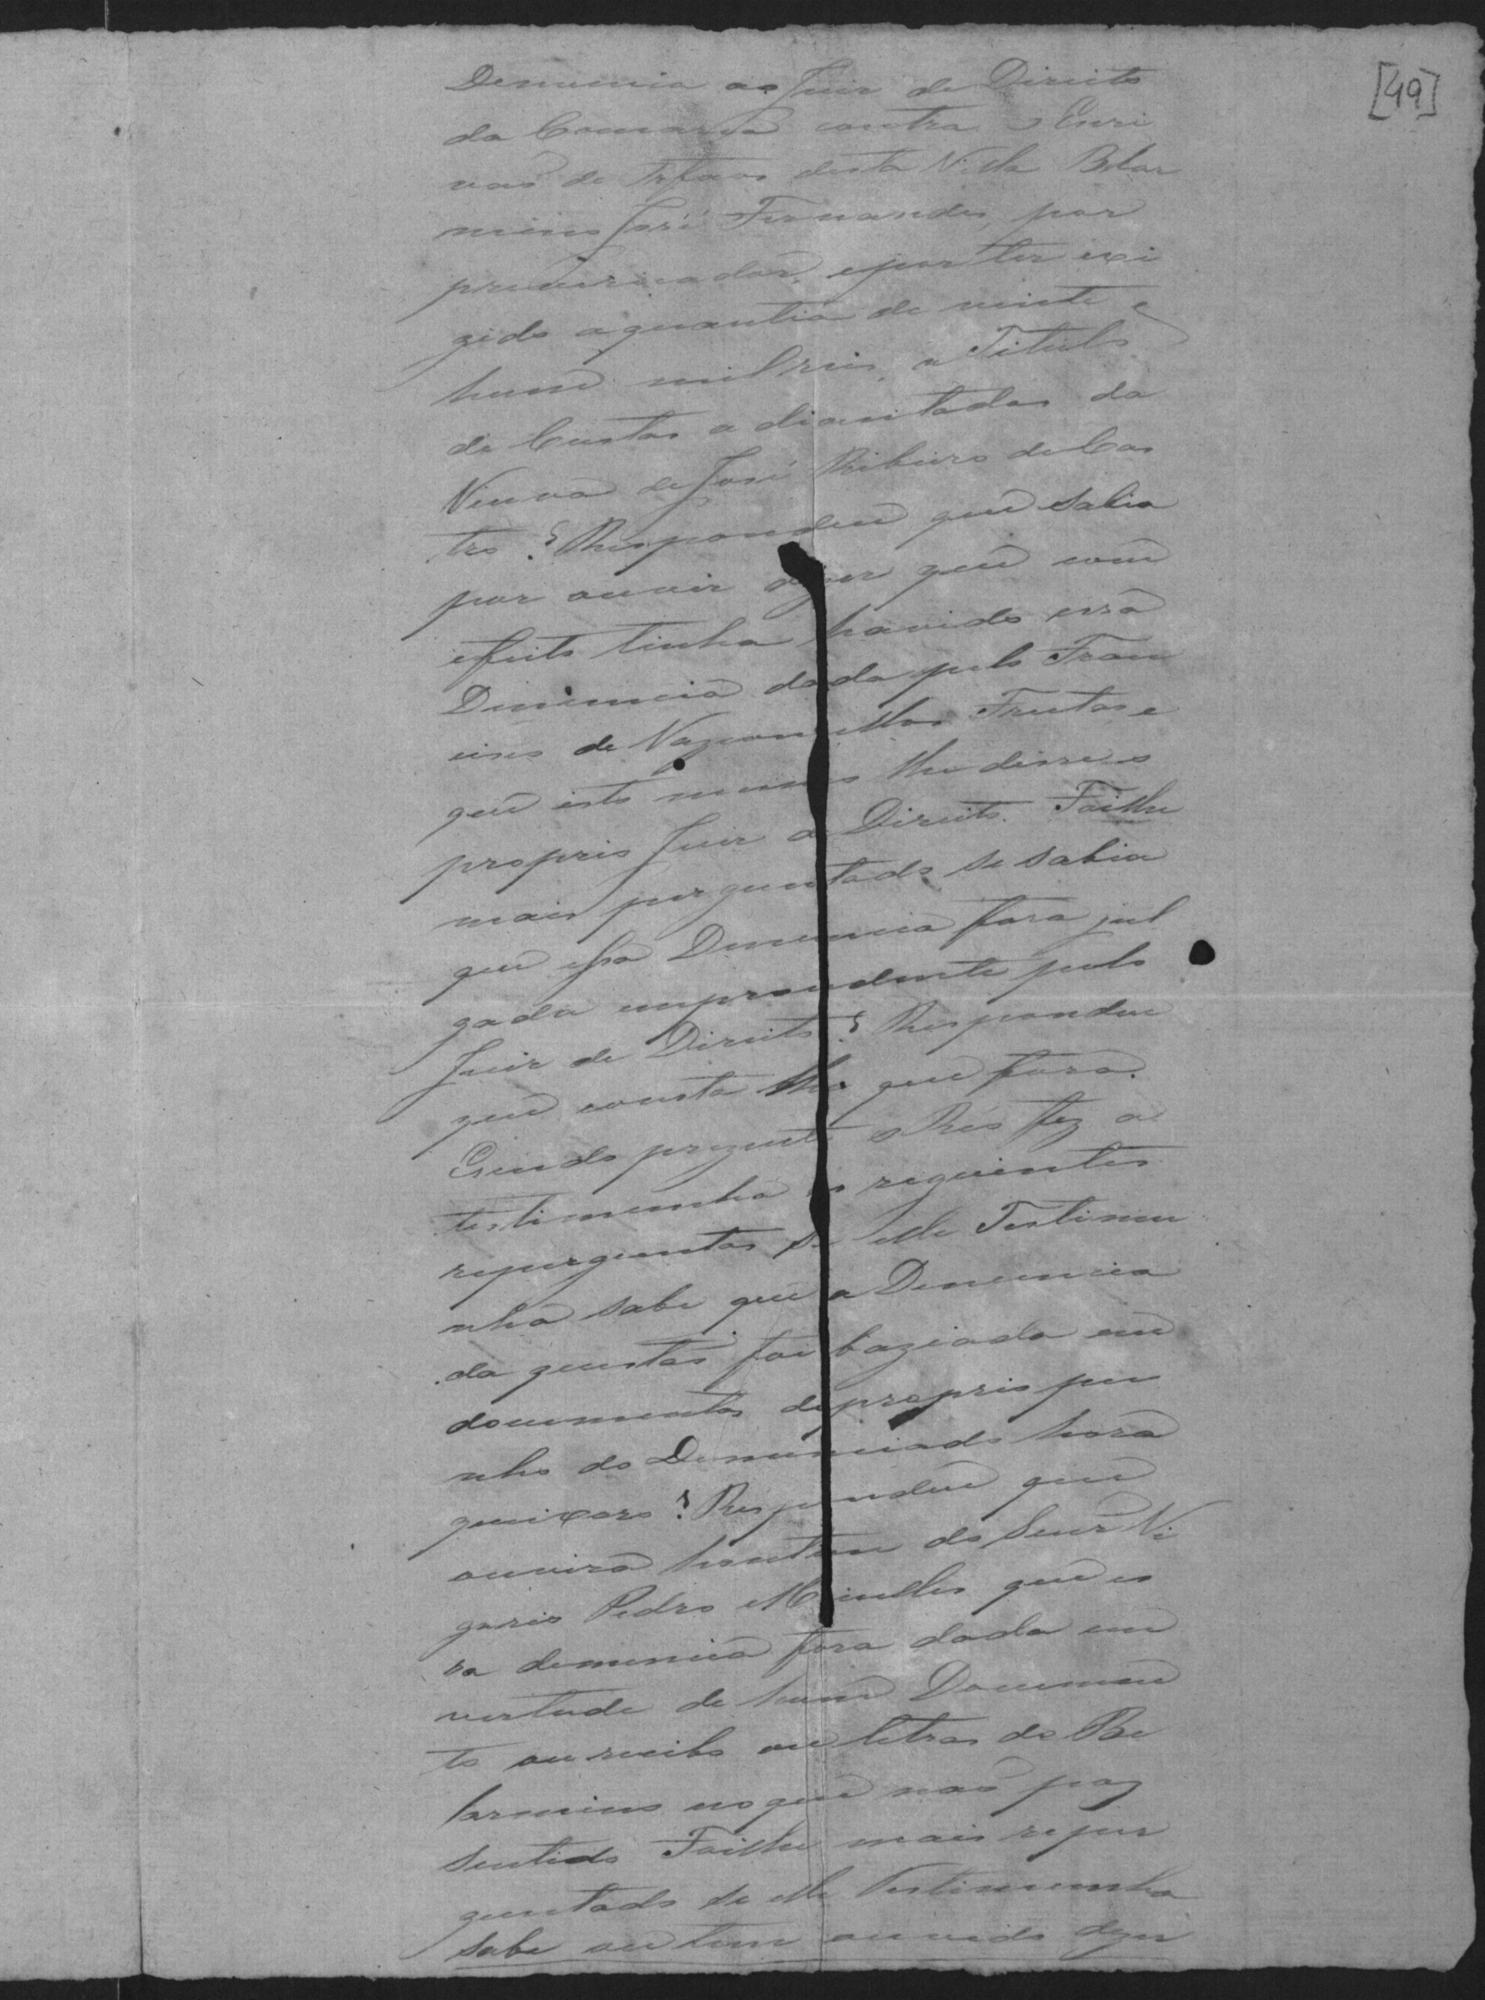 [49]
Denuncia ao Juiz de Direito
da Comarca contra o Escri
vaõ de Orfaos desta Villa Belar
mino José Fernandes, por
prevaricador, e por ter exi
gido a quantia de vinte e
hum mil reis, a Titulo
de Custas adiantadas da
Viuva de José Ribeiro de Cas
tro? Respondeu que sabia
por ouvir dizer que com
efeito tinha havido essa
Denuncia dada pelo Fran
cisco de Vasconcellos Freitas e
que isto mesmo lhe disse o
proprio Juiz de Direito. Foilhe
mais perguntado se sabia
que essa Denuncia fora jul
gada improcedente pelo
Juiz de Direito? Respondeu
que consta lhe que fora.
Esendo prezente o Réo fez a
testimunha as seguintes
reperguntas Se elle Testimu
nha sabe que a Denuncia
da questaõ foi baziada em
documentos de proprio pu
nho do Denunciado hora
queixoso? Respondeu que
ouvira hontem do Senr Vi
gario Pedro Meirelles que es
sa denuncia fora dada em
vertude de hum Documen
to ou recibo ou letras do Be
larmino no que naõ poz
sentido Foilhe mais reper
guntado se elle Testimunha
sabe ou tem ouvido dizer